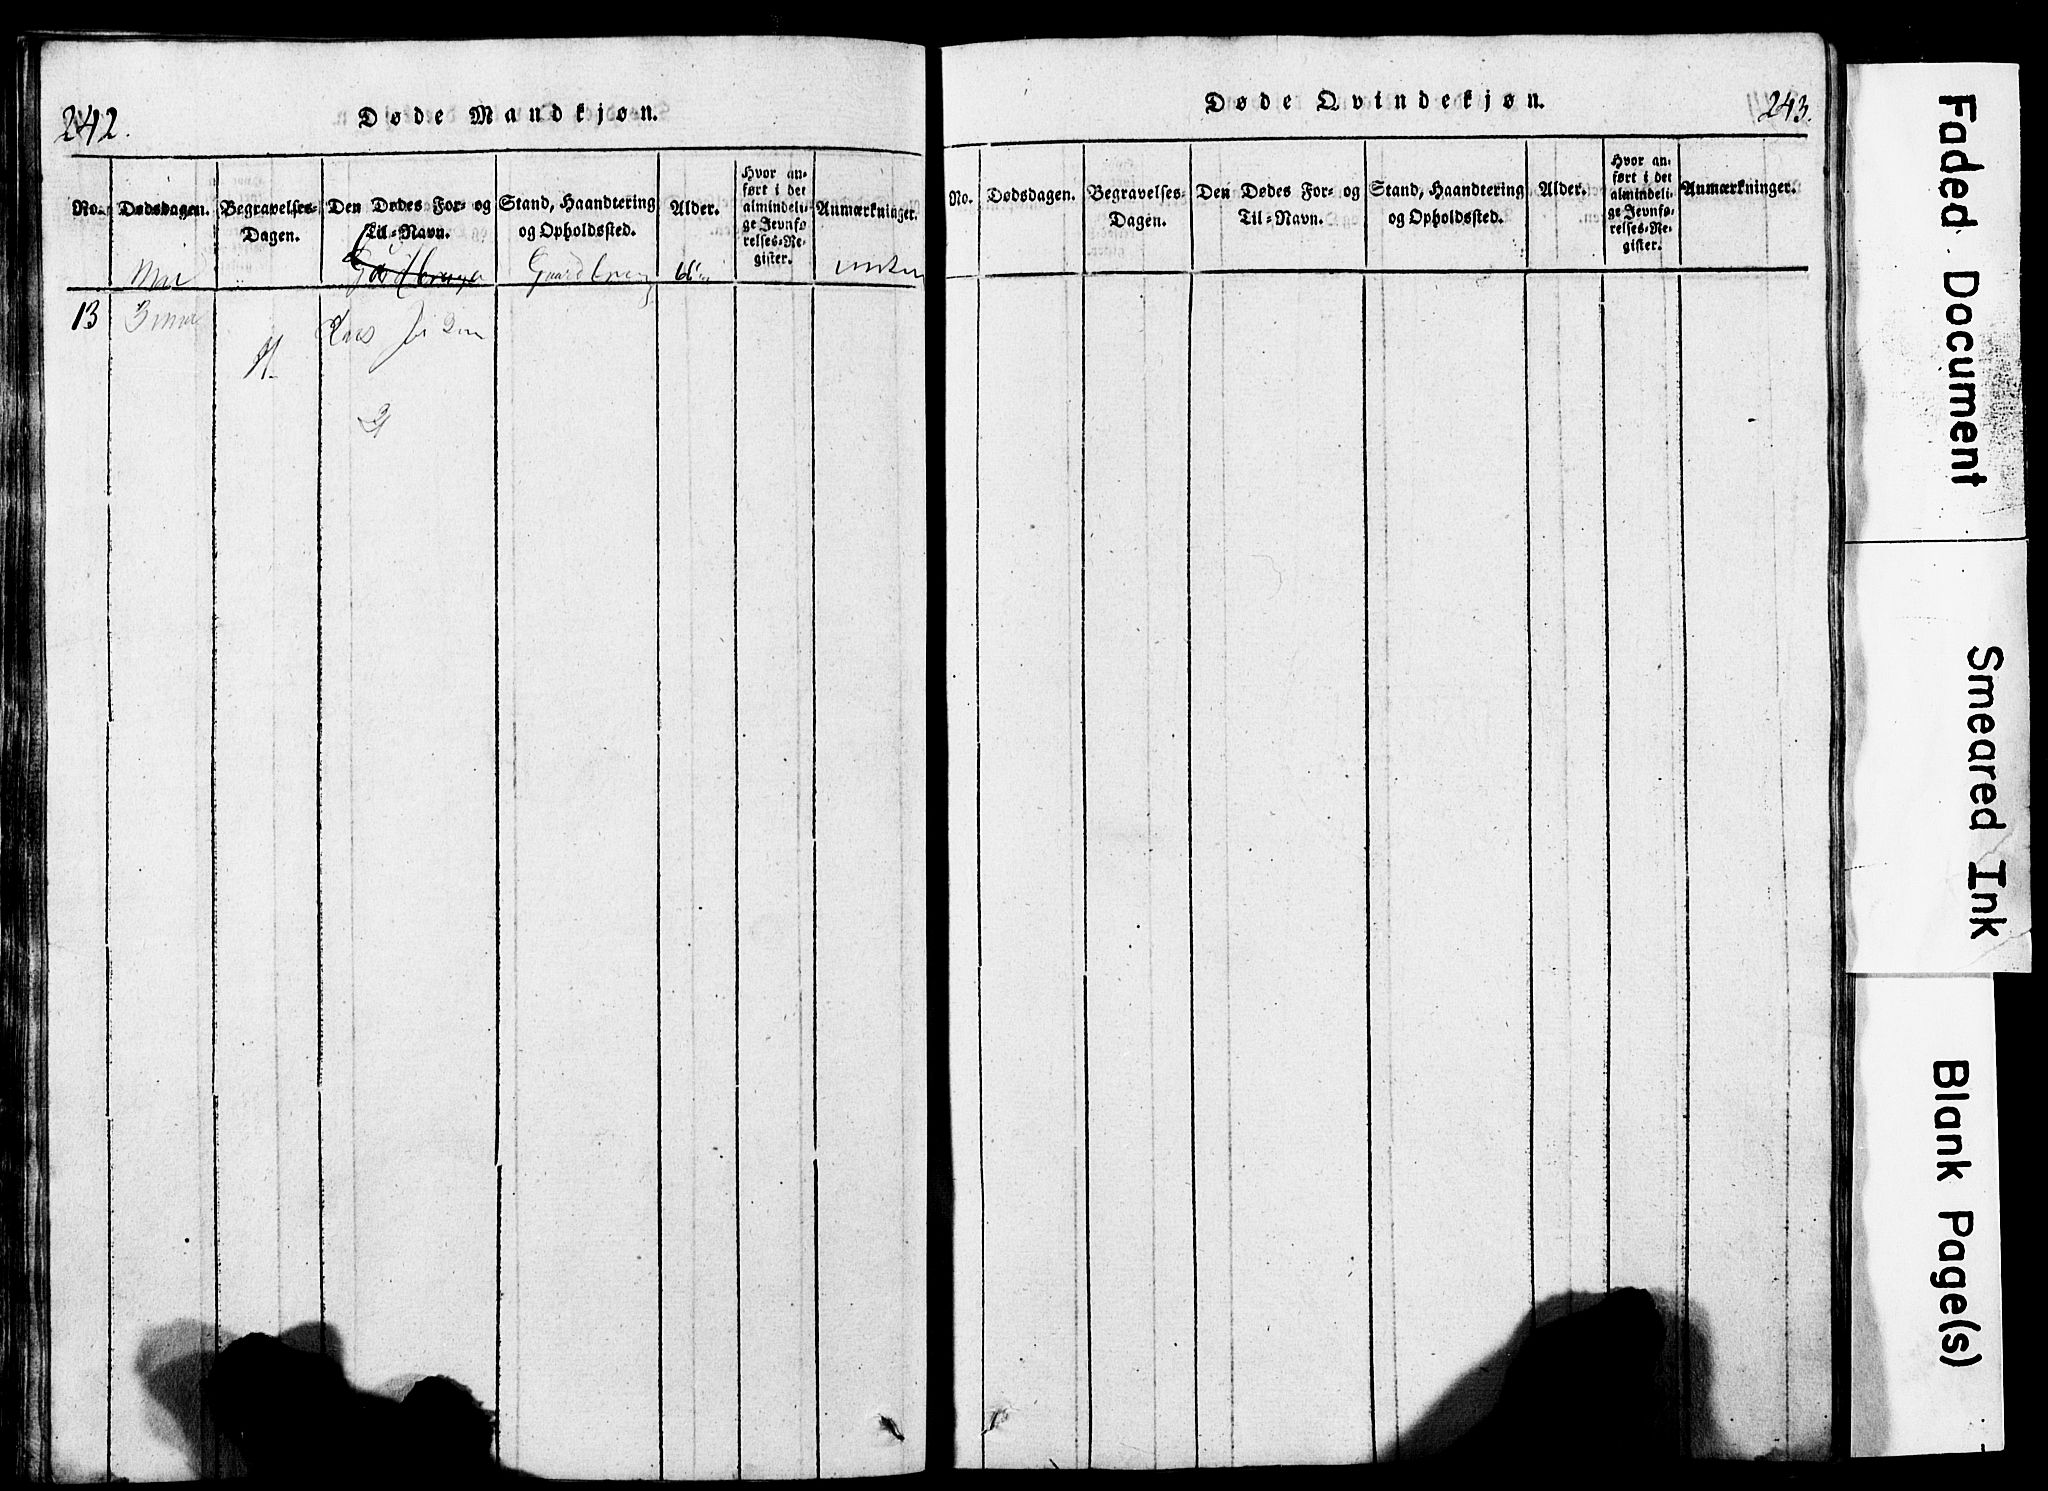 242.
Døde Mandkjøn.
No. Dødsdagen. Begravelses-Dagen. Den Dødes For- og Til-Navn. Stand, Haandtering og Opholdssted. Alder. Hvor anført i det almindelige Jevnførelses-Register. Anmærkninger.
13
Døde Qvindekjøn.
243.
No. Dødsdagen. Begravelses-Dagen. Den Dødes For- og Til-Navn. Stand, Haandtering og Opholdssted. Alder. Hvor anført i det almindelige Jevnførelses-Register. Anmærkninger.
Faded Document
Smeared Ink
Blank Page(s)